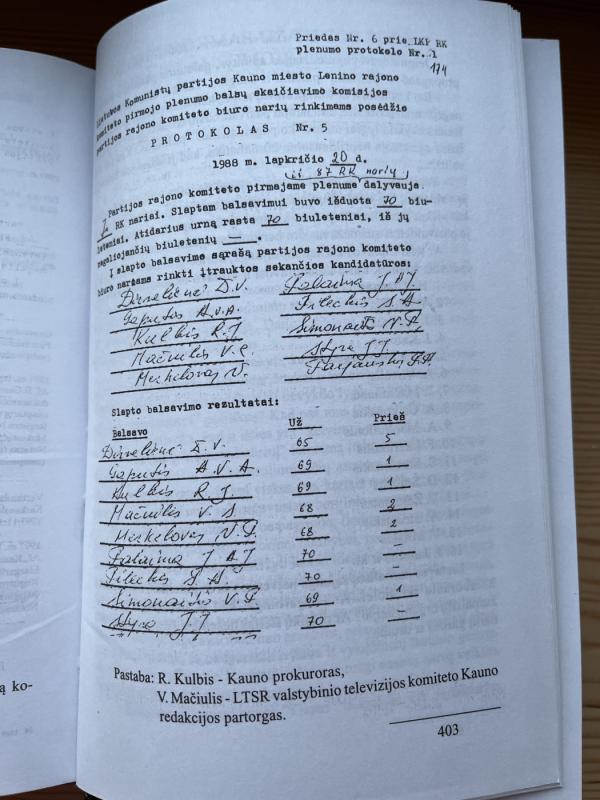 Priedas Nr. 6 prie LKP RK
plenumo protokolo Nr. 1
174
Lietuvos Komunistų partijos Kauno miesto Lenino rajono
komiteto pirmojo plenumo balsų skaičiavimo komisijos
partijos rajono komiteto biuro narių rinkimams posėdžio
PROTOKOLAS Nr. 5
1988 m. lapkričio 20 d.
iš 87 RK narių
Partijos rajono komiteto pirmajame plenume dalyvauja
RK nariai. Slaptam balsavimui buvo išduota 70 biu-
leteniai. Atidarius urną rasta 70 biuleteniai, iš jų
negaliojančių biuletenių — .
Į slapto balsavimo sąrašą partijos rajono komiteto
biuro nariams rinkti įtrauktos sekančios kandidatūros:
Dirvelienė D.V. Zalaima J.A.J.
Gaputis A.V.A. S.A.
Kulbis R.J. Simonaitė V.P.
Mačiulis V.S. Styra J.J.
Merkelovas V.
Slapto balsavimo rezultatai:
Balsavo Už Prieš
Dirvelienė D.V. 65 5
Gaputis A.V.A. 69 1
Kulbis R.J. 69 1
Mačiulis V.S. 68 2
Merkelovas V.P. 68 2
Zalaima J.A.J. 70 —
S.A. 70 —
Simonaitė V.P. 69 1
Styra J.J. 70 —
Pastaba: R. Kulbis - Kauno prokuroras,
V. Mačiulis - LTSR valstybinio televizijos komiteto Kauno
redakcijos partorgas.
403
ą ko-